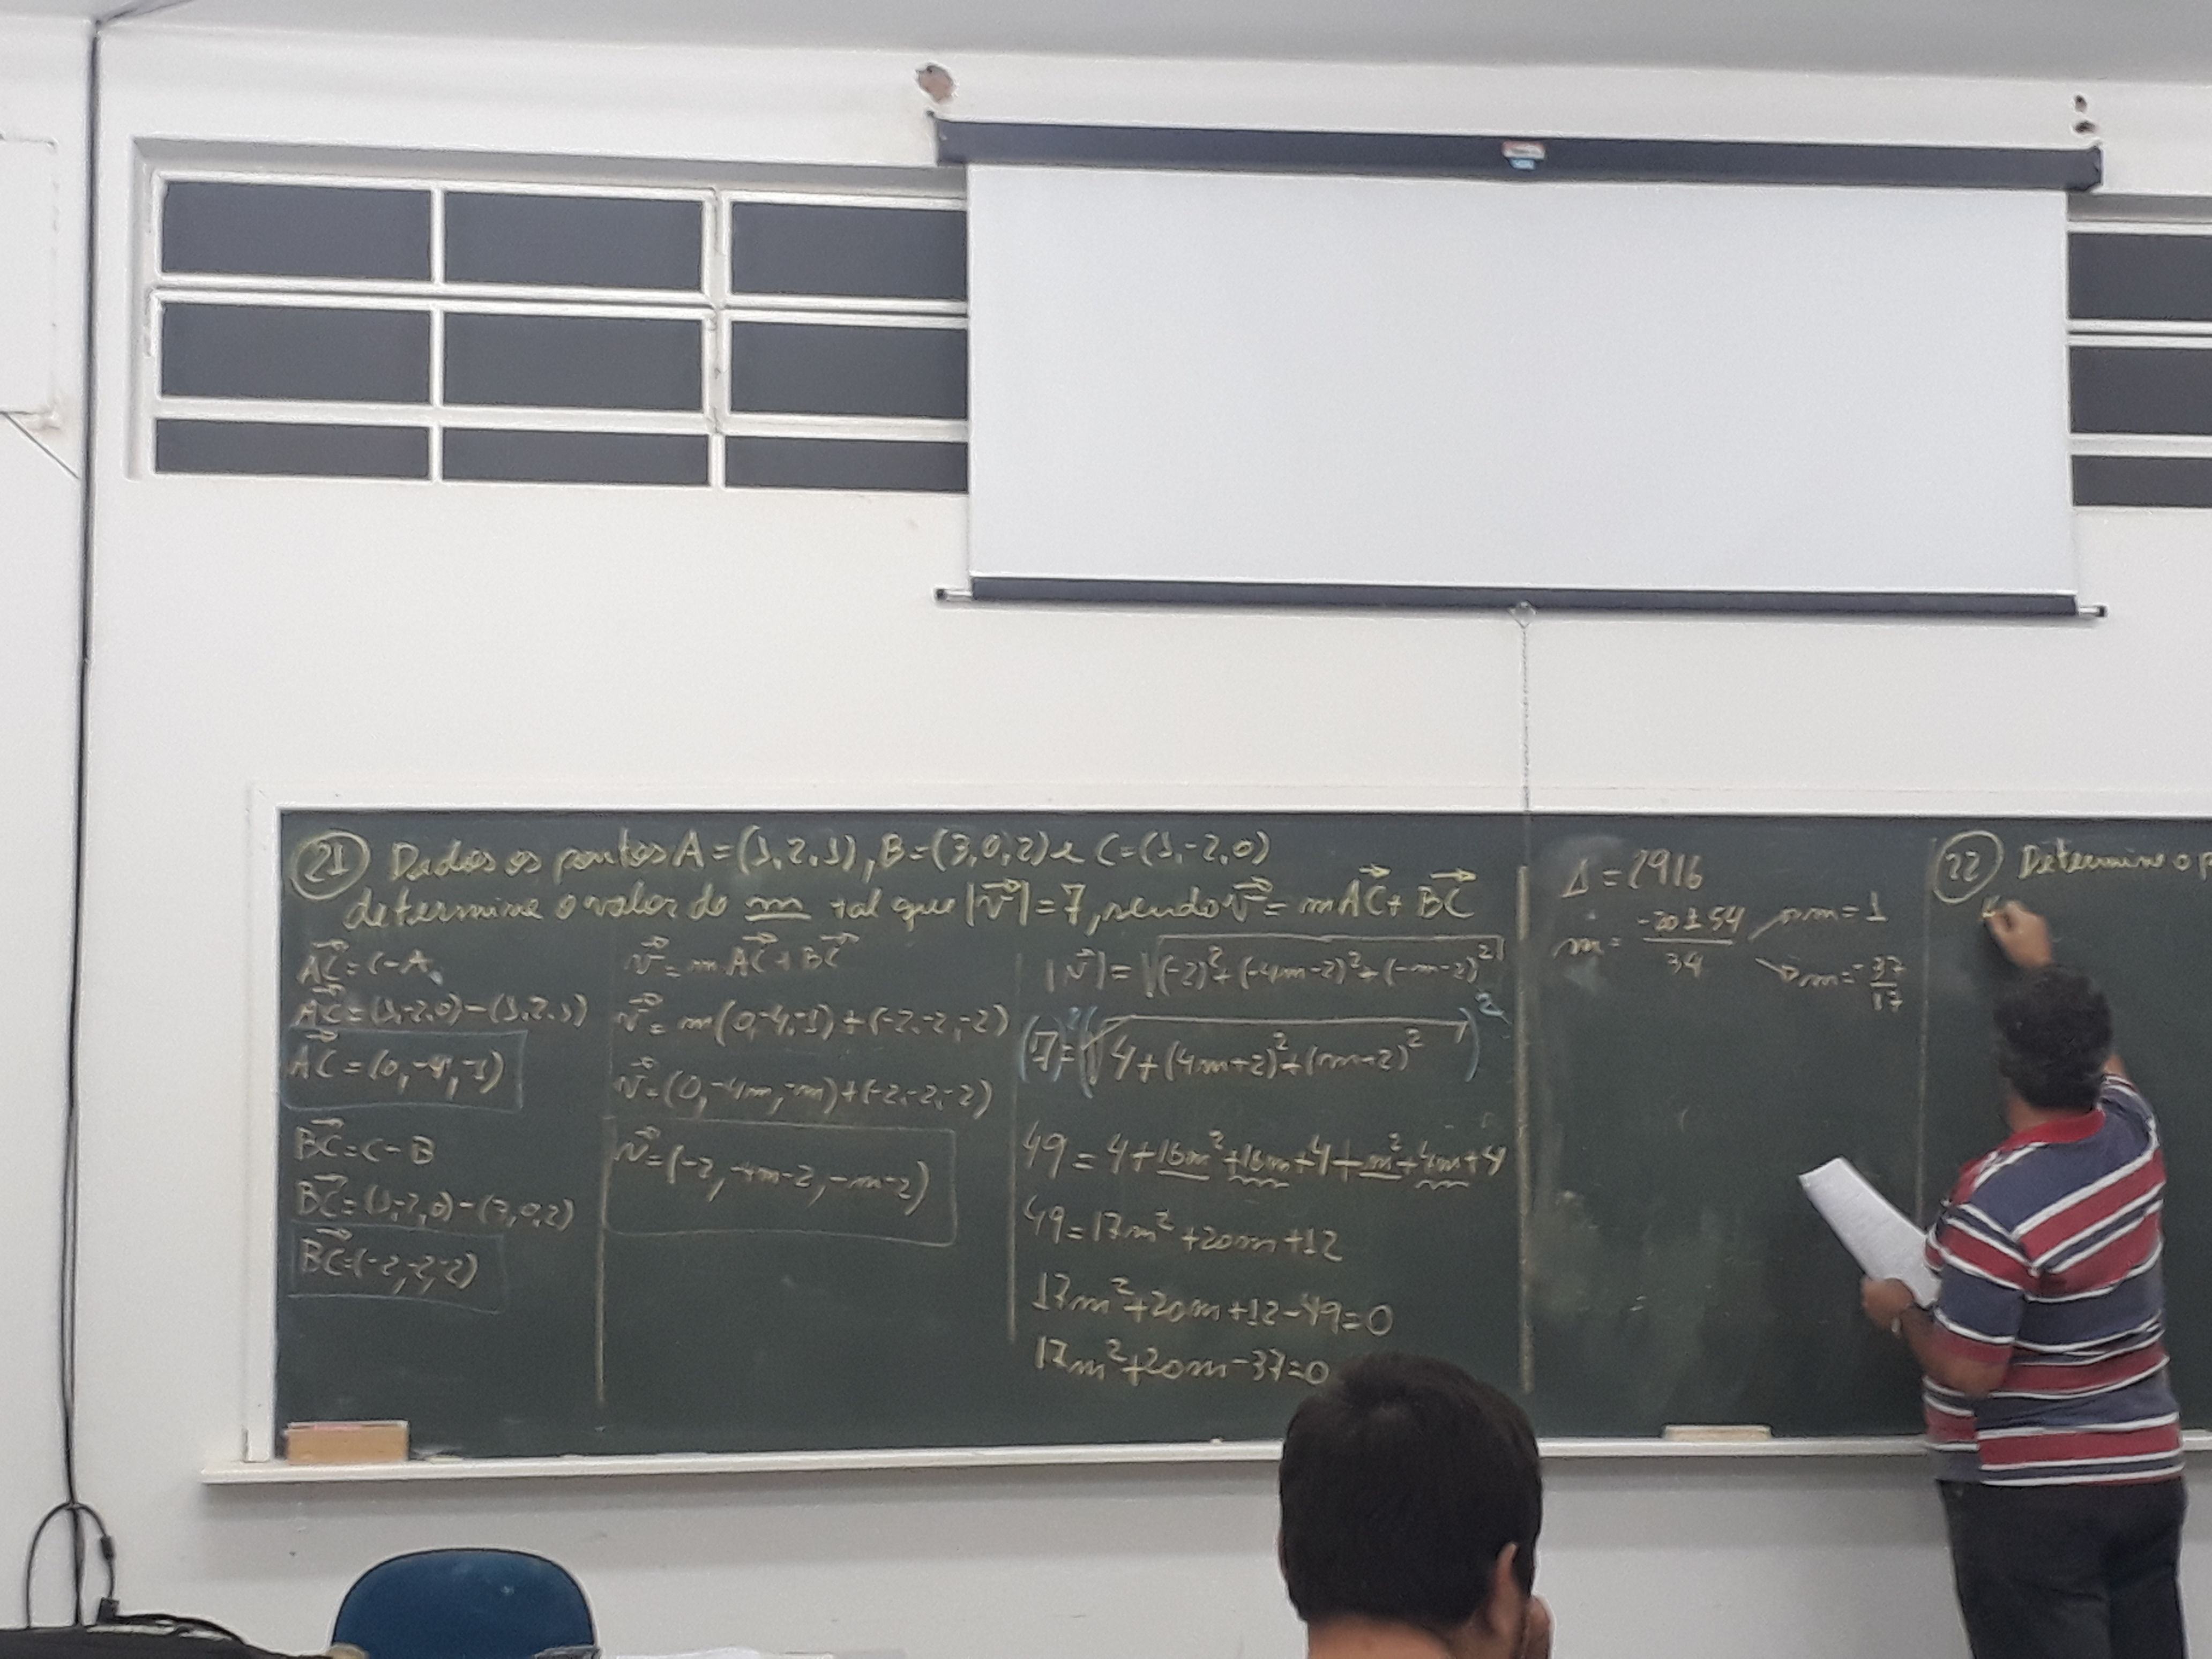 21 Dados os pontos A=(1,2,1), B=(3,0,2) e C=(1,-2,0)
determine o valor de m tal que |v⃗|=7, sendo v⃗=mAC⃗+BC⃗
AC⃗=C-A
AC⃗=(1,-2,0)-(1,2,1)
AC⃗=(0,-4,-1)
BC⃗=C-B
BC⃗=(1,-2,0)-(3,0,2)
BC⃗=(-2,-2,-2)
v⃗=mAC⃗+BC⃗
v⃗=m(0,-4,-1)+(-2,-2,-2)
v⃗=(0,-4m,-m)+(-2,-2,-2)
v⃗=(-2,-4m-2,-m-2)
|v⃗|=√((-2)²+(-4m-2)²+(-m-2)²)
(7)²=(√(4+(4m+2)²+(m+2)²))²
49=4+16m²+16m+4+m²+4m+4
49=17m²+20m+12
17m²+20m+12-49=0
17m²+20m-37=0
Δ=2916
m=(-20±54)/34
m=1
m=-37/17
22 Determine o